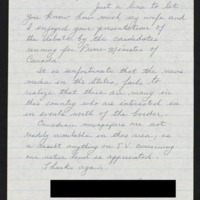 Just a line to let
you know how much my wife and
I enjoyed your presentation of
the debate by the candidates
running for Prime-Minister of
Canada.
It is unfortunate that the news
media in the States, fails to
realize that there are many in
this country who are interested in
in events north of the border.
Canadian newspapers are not
readily available in this area, as
a result anything on T.V. concerning
our native land is appreciated.
Thanks again.